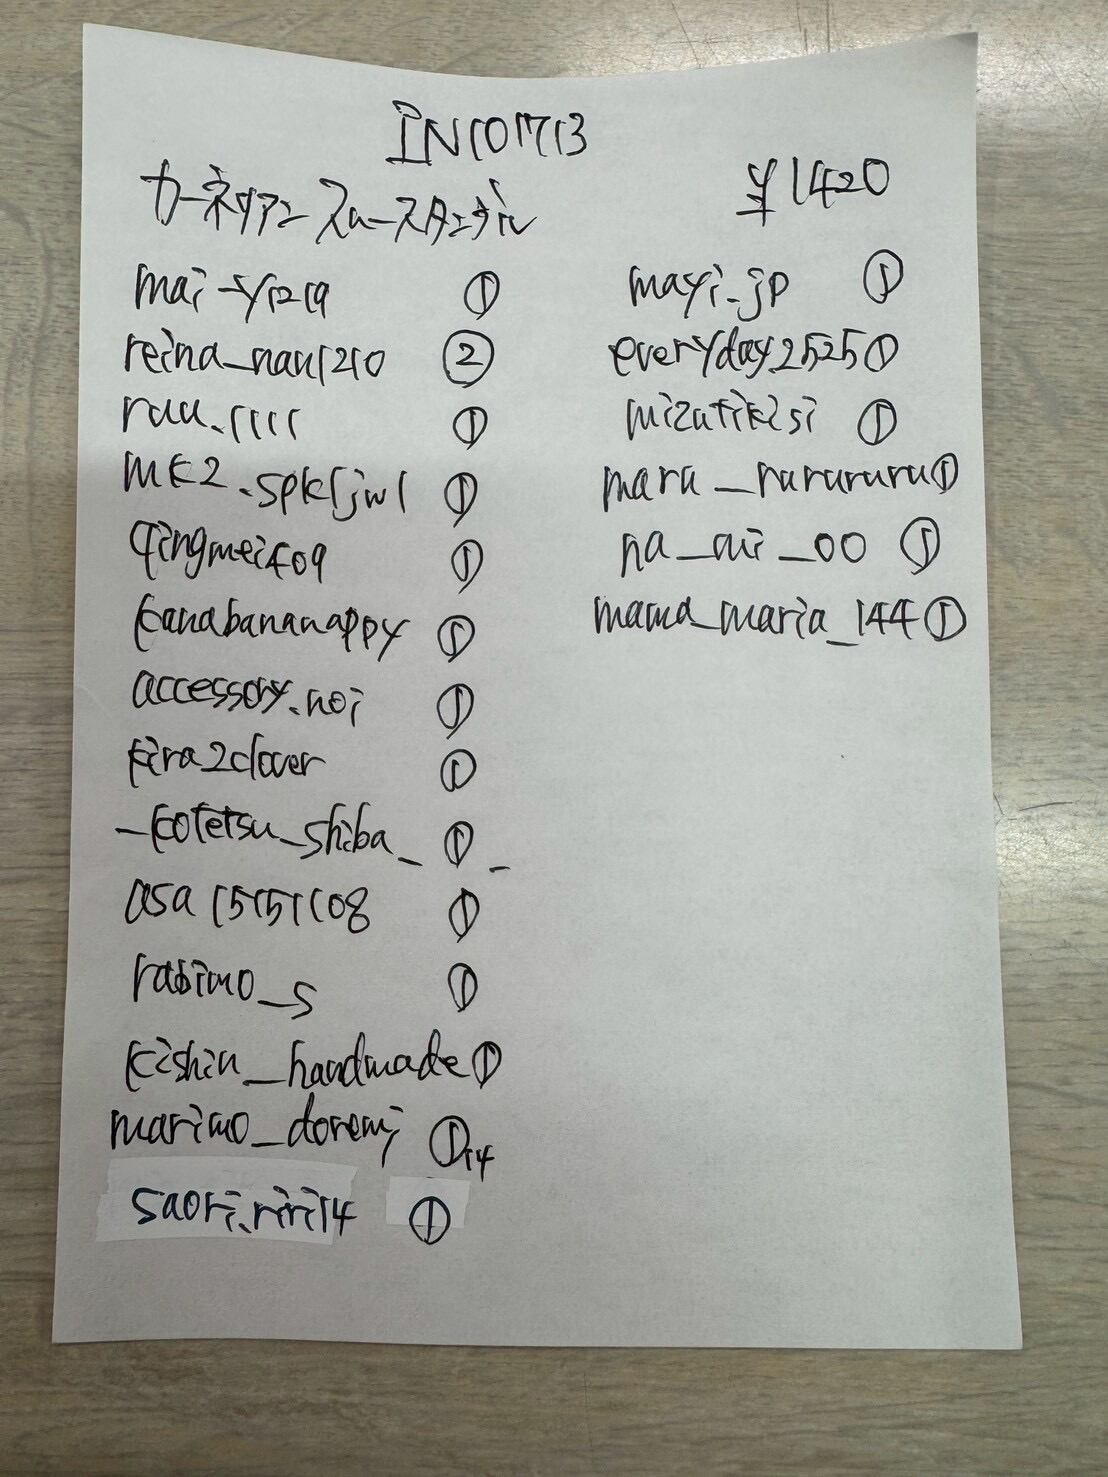 IN101713
カーネリアン スロースタンダル
¥1420
mai-y1219 ①
reina_nan1210 ②
ruu.1111 ①
mk2.spk1jw1 ①
qingmei409 ①
kanabananappy ①
accessory.noi ①
kira2clover ①
_kotetsu_shiba_ ① _
asa15151108 ①
rabimo_s ①
kishin_handmade ①
marimo_doremi ① 14
saori.riri14 ①
mayi.jp ①
everyday2525 ①
mizutikisi ①
maru_rurururu ①
na_mi_00 ①
mama_maria_144 ①